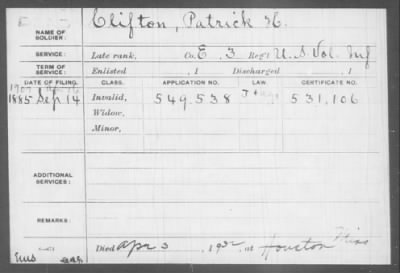 NAME OF SOLDIER: Clifton, Patrick H.
SERVICE: Late rank, Co. E, 3 Reg't U.S Vol. Inf
TERM OF SERVICE: Enlisted , 1 Discharged , 1
DATE OF FILING. CLASS. APPLICATION NO. LAW. CERTIFICATE NO.
1885 Sep 14 Invalid, 549.538 531,106
Widow,
Minor,
ADDITIONAL SERVICES:
REMARKS:
Died Apr 3, 1932, at Houston Miss